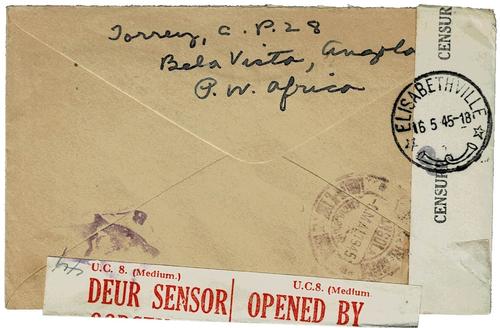 Torrey, C. P. 28
Bela Vista, Angola
P. W. Africa
CENSUR
ELISABETHVILLE
16 5 45-18
CENSUR
MAI 1945
U.C. 8. (Medium.)
U.C.8. (Medium
DEUR SENSOR
OPENED BY